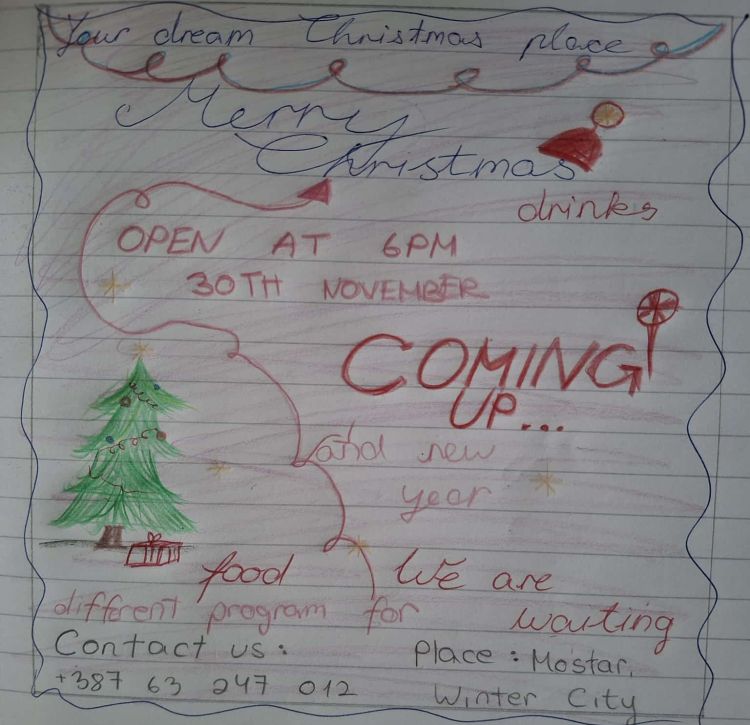 Your dream Christmas place
Merry
Christmas
drinks
OPEN AT 6PM
30TH NOVEMBER
COMING
UP...
and new
year
food
We are
different program for
waiting
Contact us:
+387 63 247 012
Place: Mostar,
Winter City